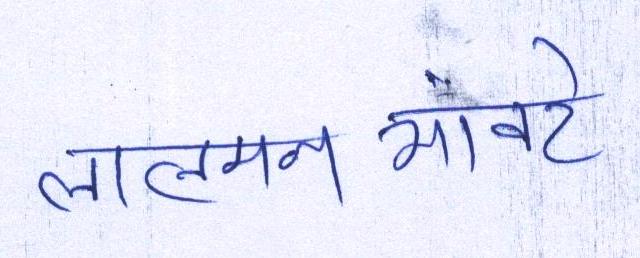 लालमन मोवटे